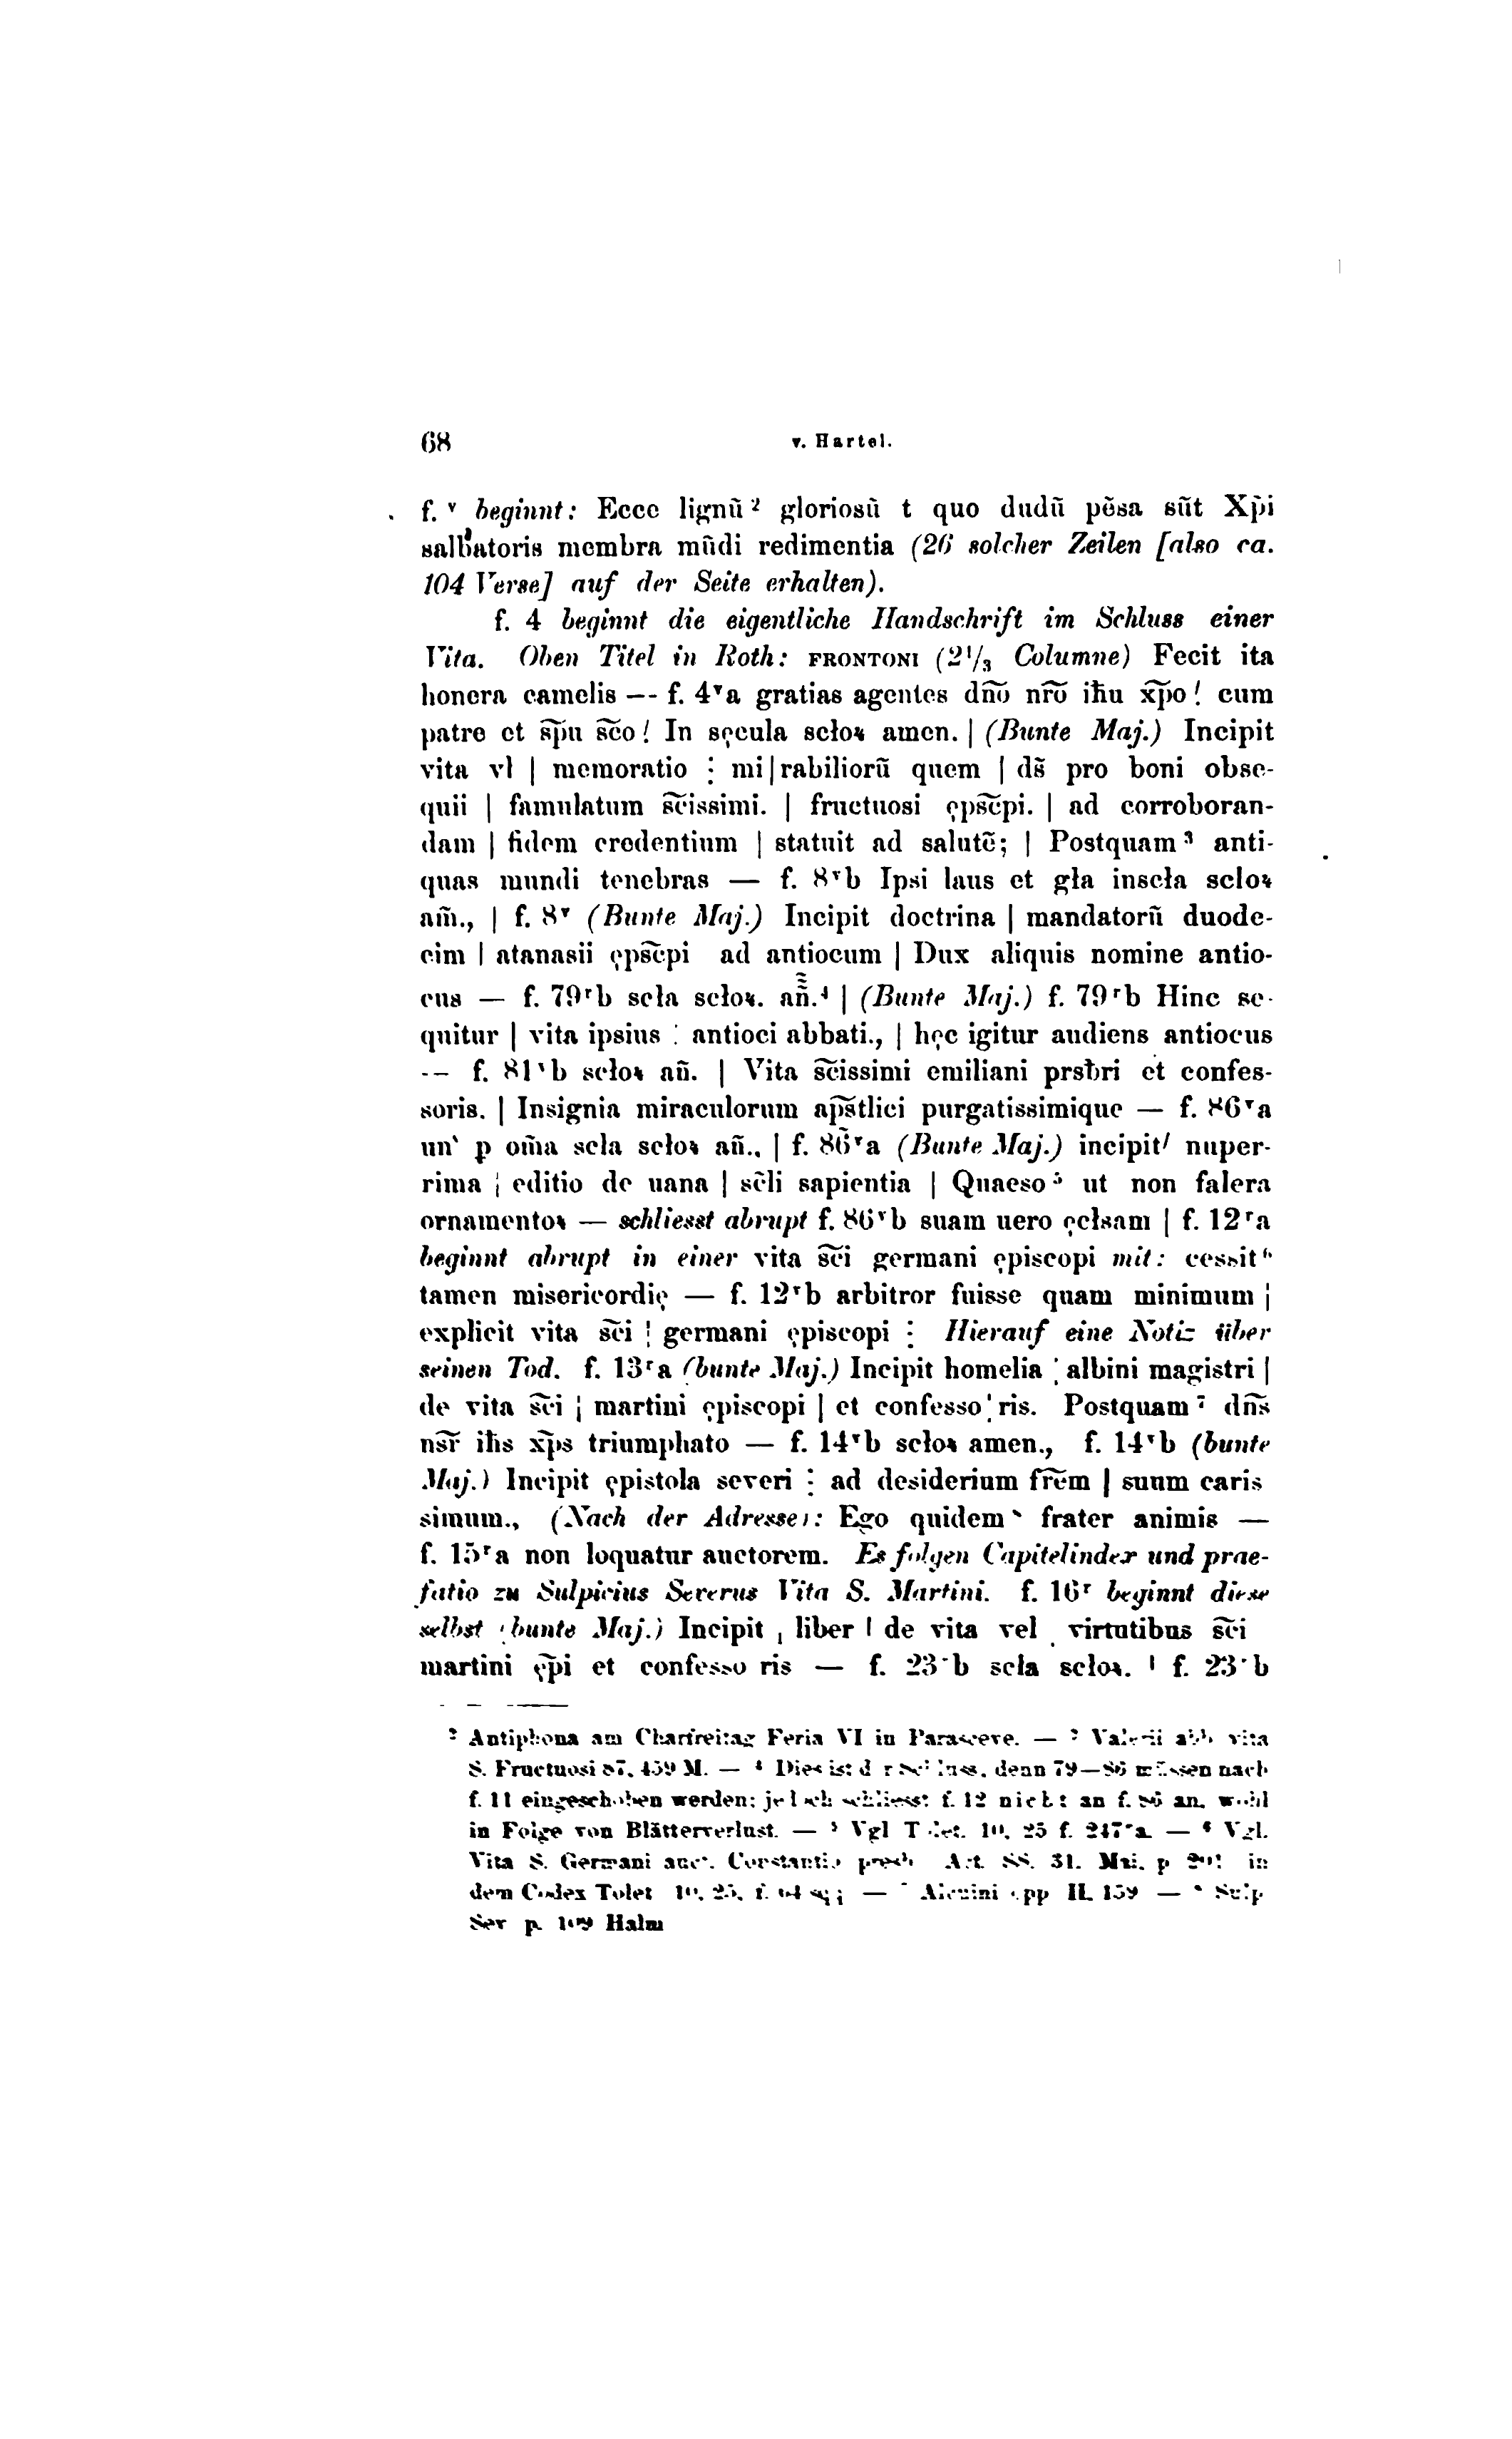 68 v. Hartel.
f. ᵛ beginnt: Ecce lignū ² gloriosū t quo dudū pēsa sūt Xp̄i
salbatoris membra mūdi redimentia (26 solcher Zeilen [also ca.
104 Verse] auf der Seite erhalten).
f. 4 beginnt die eigentliche Handschrift im Schluss einer
Vita. Oben Titel in Roth: FRONTONI (2¹/₃ Columne) Fecit ita
honera camelis — f. 4ᵛa gratias agentes dn͞o nr͞o ihu xp͞o! cum
patre et sp͞u sc͞o! In sęcula scłoꝝ amen. | (Bunte Maj.) Incipit
vita vl | memoratio ⋮ mi|rabiliorū quem | ds̄ pro boni obse-
quii | famulatum sc͞issimi. | fructuosi ępsc͞pi. | ad corroboran-
dam | fidem credentium | statuit ad salutē; | Postquam ³ anti-
quas mundi tenebras — f. 8ᵛb Ipsi laus et gła inscła scloꝝ
am̄., | f. 8ᵛ (Bunte Maj.) Incipit doctrina | mandatorū duode-
cim | atanasii ępsc͞pi ad antiocum | Dux aliquis nomine antio-
cus — f. 79ʳb scła scłoꝝ. an̄.⁴ | (Bunte Maj.) f. 79ʳb Hinc se-
quitur | vita ipsius ⋮ antioci abbati., | hęc igitur audiens antiocus
— f. 81ᵛb scłoꝝ an̄. | Vita sc͞issimi emiliani prsƀri et confes-
soris. | Insignia miraculorum aps͞tlici purgatissimique — f. 86ᵛa
un‘ ꝑ om̄a scla scłoꝝ an̄., | f. 86ᵛa (Bunte Maj.) incipit/ nuper-
rima ¦ editio de uana | sc̄li sapientia | Quaeso ⁵ ut non falera
ornamentoꝝ — schliesst abrupt f. 86ᵛb suam uero ęcłsam | f. 12ʳa
beginnt abrupt in einer vita sc͞i germani ępiscopi mit: cessit⁶
tamen misericordię — f. 12ʳb arbitror fuisse quam minimum ¦
explicit vita sc͞i ¦ germani ępiscopi ⋮ Hierauf eine Notiz über
seinen Tod. f. 13ʳa (bunte Maj.) Incipit homelia ¦ albini magistri |
de vita sc͞i ¦ martini ępiscopi | et confesso¦ris. Postquam ⁷ dn͞s
ns͞r ihs xp͞s triumphato — f. 14ᵛb scłoꝝ amen., f. 14ᵛb (bunte
Maj.) Incipit ępistola severi ⋮ ad desiderium fr͞em | suum caris
simum., (Nach der Adresse): Ego quidem ⁸ frater animis —
f. 15ʳa non loquatur auctorem. Es folgen Capitelindex und prae-
fatio zu Sulpicius Severus Vita S. Martini. f. 16ʳ beginnt diese
selbst (bunte Maj.) Incipit | liber | de vita vel virtutibus sc͞i
martini ęp͞i et confesso ris — f. 23 b scła scłoꝝ. | f. 23 b
² Antiphona am Charfreitag Feria VI in Parasceve. — ³ Valerii abb. vita
S. Fructuosi 87, 459 M. — ⁴ Dies ist der Schluss, denn 79—86 müssen nach
f. 11 eingeschoben werden; jedoch schliesst f. 12 nicht an f. 86 an, wohl
in Folge von Blätterverlust. — ⁵ Vgl Tolet. 10, 25 f. 247ʳa. — ⁶ Vgl.
Vita S. Germani auct. Constantio presb. Act. SS. 31. Mai. p in
dem Codex Tolet 10, 25, f. 64 sqq — ⁷ Alcuini opp II. 159 — ⁸ Sulp
Sev p. 109 Halm